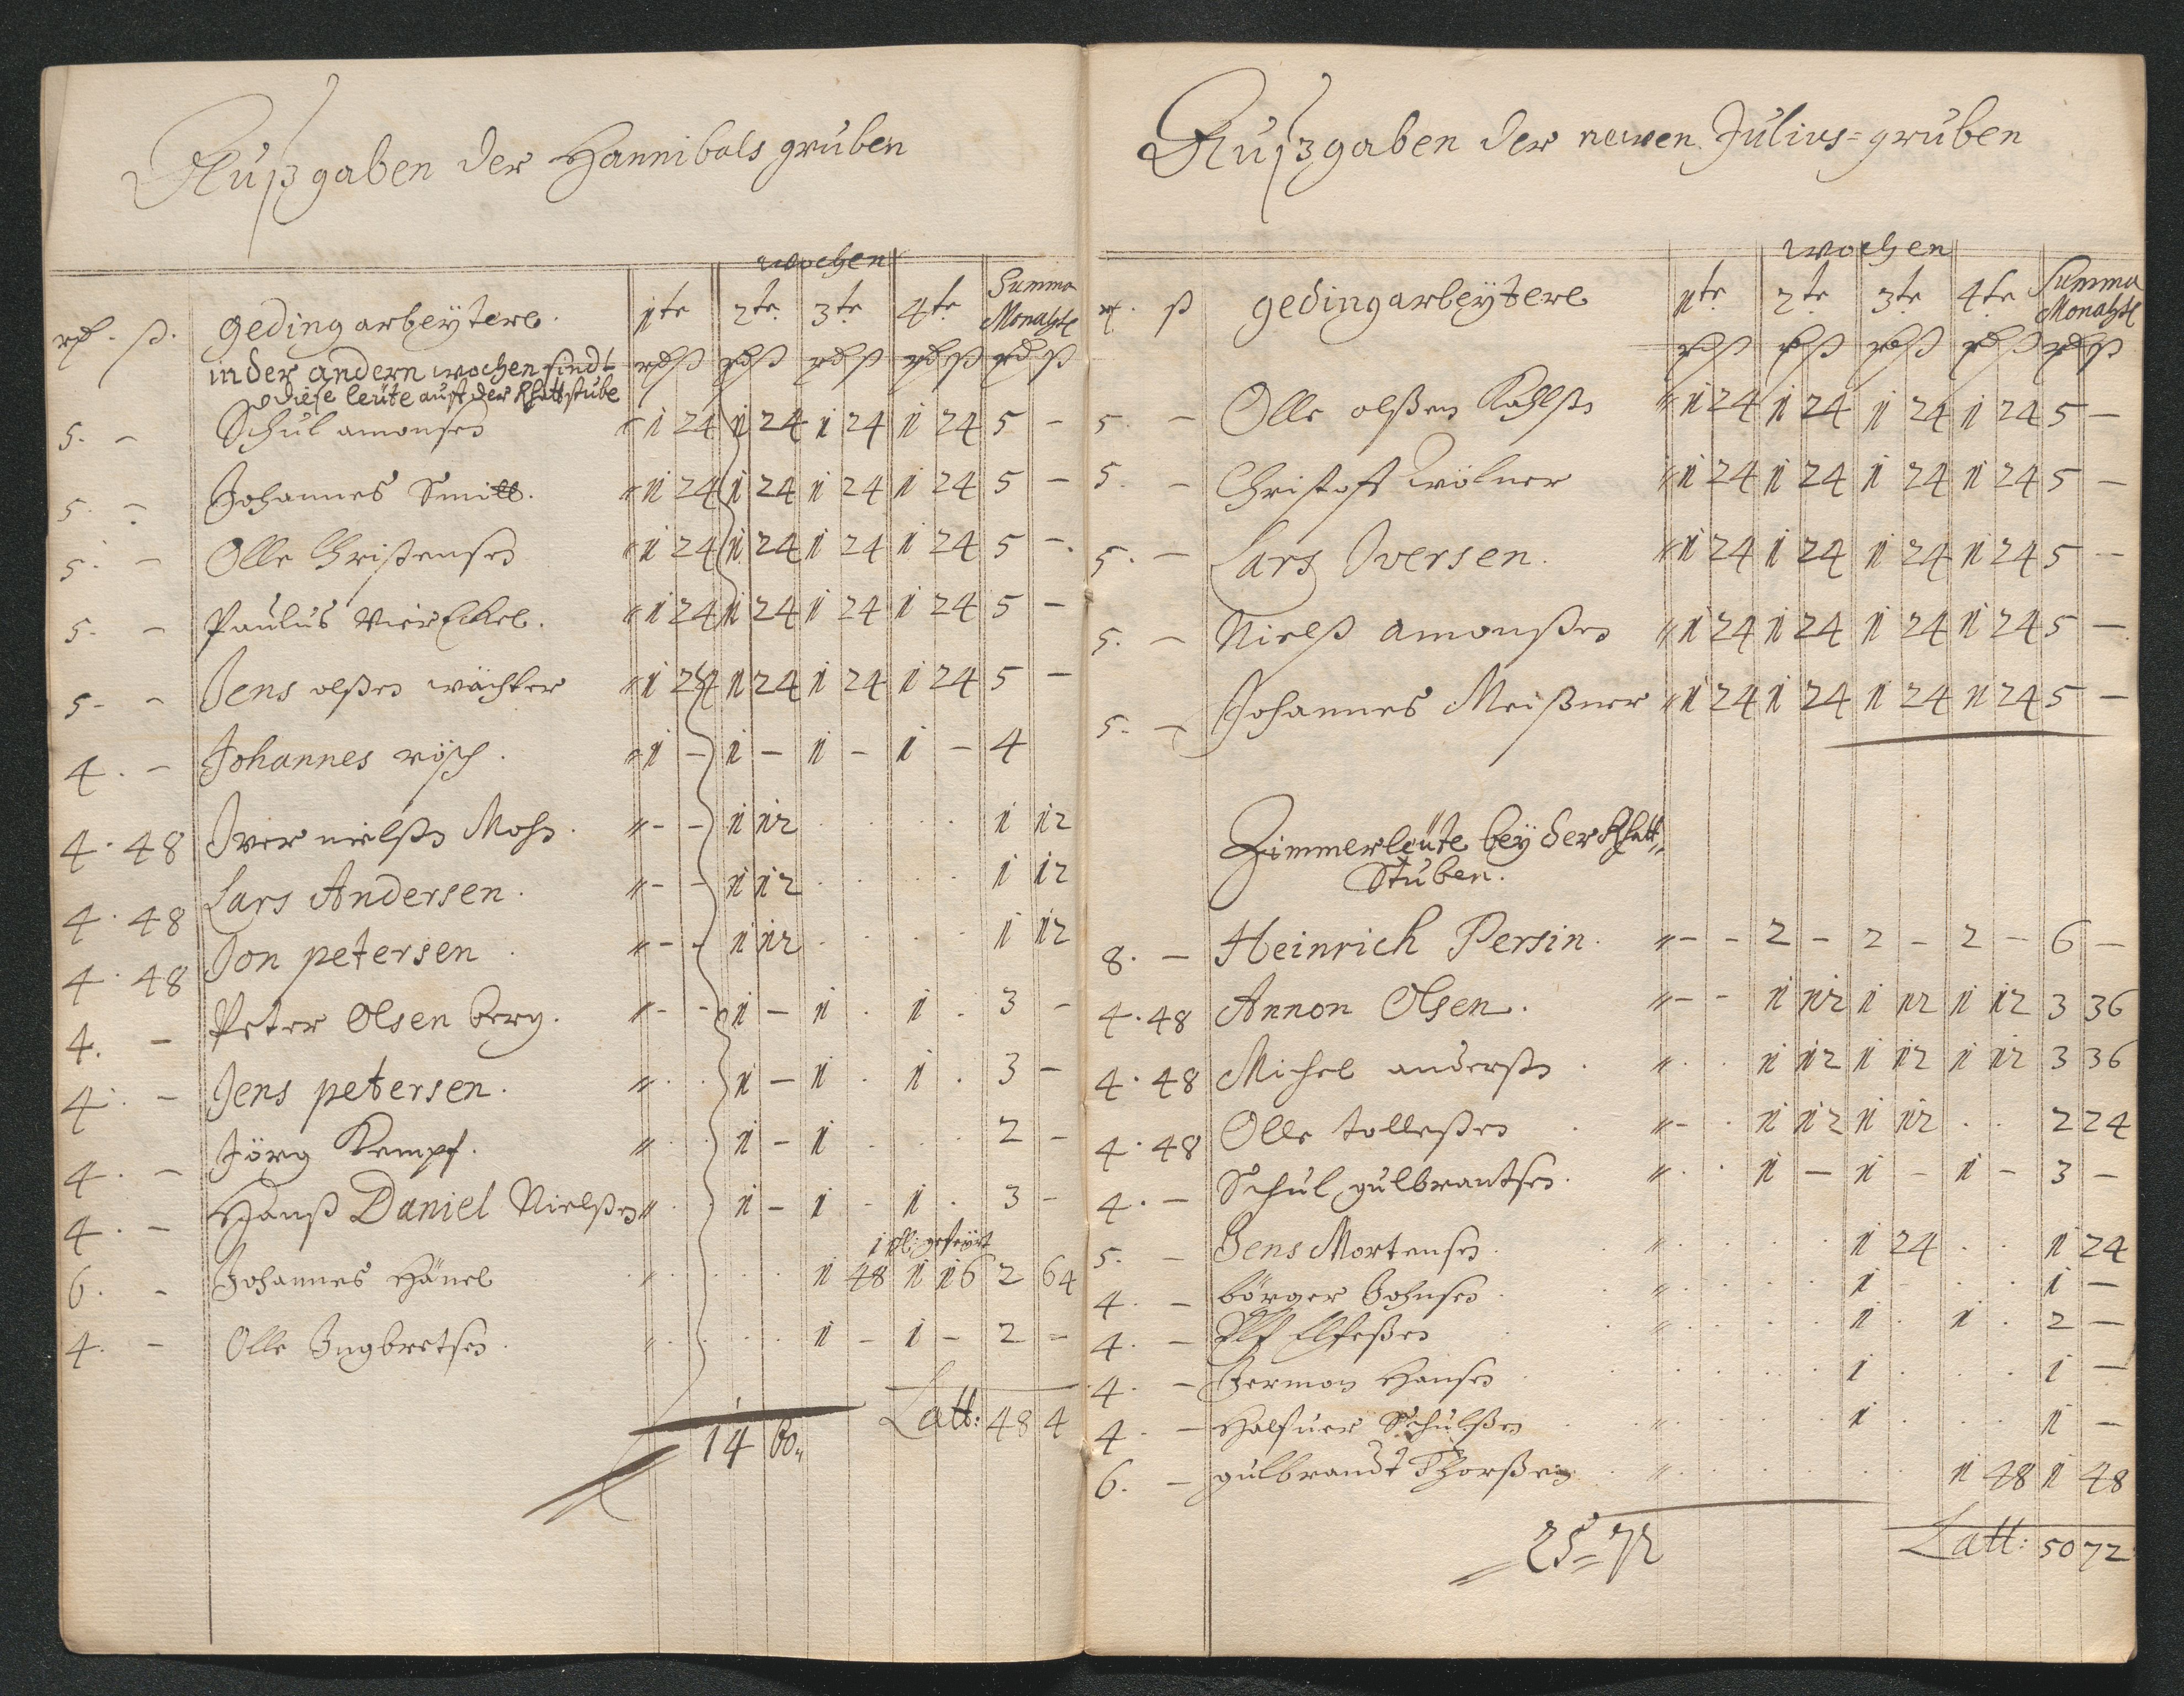 Außgaben der Hannibals gruben
wochen
rd. ß. gedingarbeÿtere. 1te 2te 3te 4te Summa Monahtl
in der andern wochen sindt rdß rdß rdß rdß rdß
diese leüte auß der Rhattstube
5. - Schul amonsen " 1 24 1 24 1 24 1 24 5 -
5. - Johannes Smitt. " 1 24 1 24 1 24 1 24 5 -
5. - Olle Christensen " 1 24 1 24 1 24 1 24 5 -
5. - Paulus Vier " 1 24 1 24 1 24 1 24 5 -
5. - Jens olßen wächter " 1 24 1 24 1 24 1 24 5 -
4. - Johannes rösch. " 1 - 1 - 1 - 1 - 4
4. 48 Iver nielßn Mohn. " - - 1 12 . . . . 1 12
4. 48 Lars Andersen. " - - 1 12 . . . . 1 12
4. 48 Jon petersen. " - - 1 12 . . . . 1 12
4. - Peter Olsen berg. " - - 1 - 1 . 1 . 3 -
4. - Jens petersen. " . . 1 - 1 . 1 . 3 -
4. - Jörg Kempf. " . . 1 - 1 . . . 2 -
4. - Hanß Daniel Nielßen " . . 1 - 1 - 1 . 3 -
6. - Johannes Hänel " . . . . 1 48 1 16 2 64
4. - Olle Ingbretsen. " . . . . 1 - 1 - 2 -
Latt: 48 4
14 60
Außgaben der newen Julius=gruben
wochen
rd. ß gedingarbeÿtere 1te 2te 3te 4te Summa Monahtl
rdß rdß rdß rdß rdß
5. - Olle olßen " 1 24 1 24 1 24 1 24 5 -
5. - Christoff wölner " 1 24 1 24 1 24 1 24 5 -
5. - Lars Iversen. " 1 24 1 24 1 24 1 24 5 -
5. - Nielß amonßen " 1 24 1 24 1 24 1 24 5 -
5. - Johannes Meißner " 1 24 1 24 1 24 1 24 5 -
Zimmerleüte beÿ der Rhatt"
Stuben.
8. - Heinrich Persin. " - - 2 - 2 - 2 - 6 -
4. 48 Annon Olsen. " - - 1 12 1 12 1 12 3 36
4. 48 Michel anderßn. " . . 1 12 1 12 1 12 3 36
4. 48 Olle tolleßen. " - . 1 12 1 12 . . 2 24
4. - Schul gulbrantsen. " . . 1 - 1 - 1 - 3 -
5. - Jens Mortensen. " . . . . 1 24 . . 1 24
4. - börger Johnsen. " . . . . 1 . . . 1 -
4. - " . . . . 1 . 1 . 2 -
4. - Jermon Hansen . . . . . 1 . . . 1 -
4. - Halfuer Schulßen . " . . . . 1 . . . 1 -
6. - gulbrandt Thorßen . " . . . . . . 1 48 1 48
25=72
Latt: 50 72